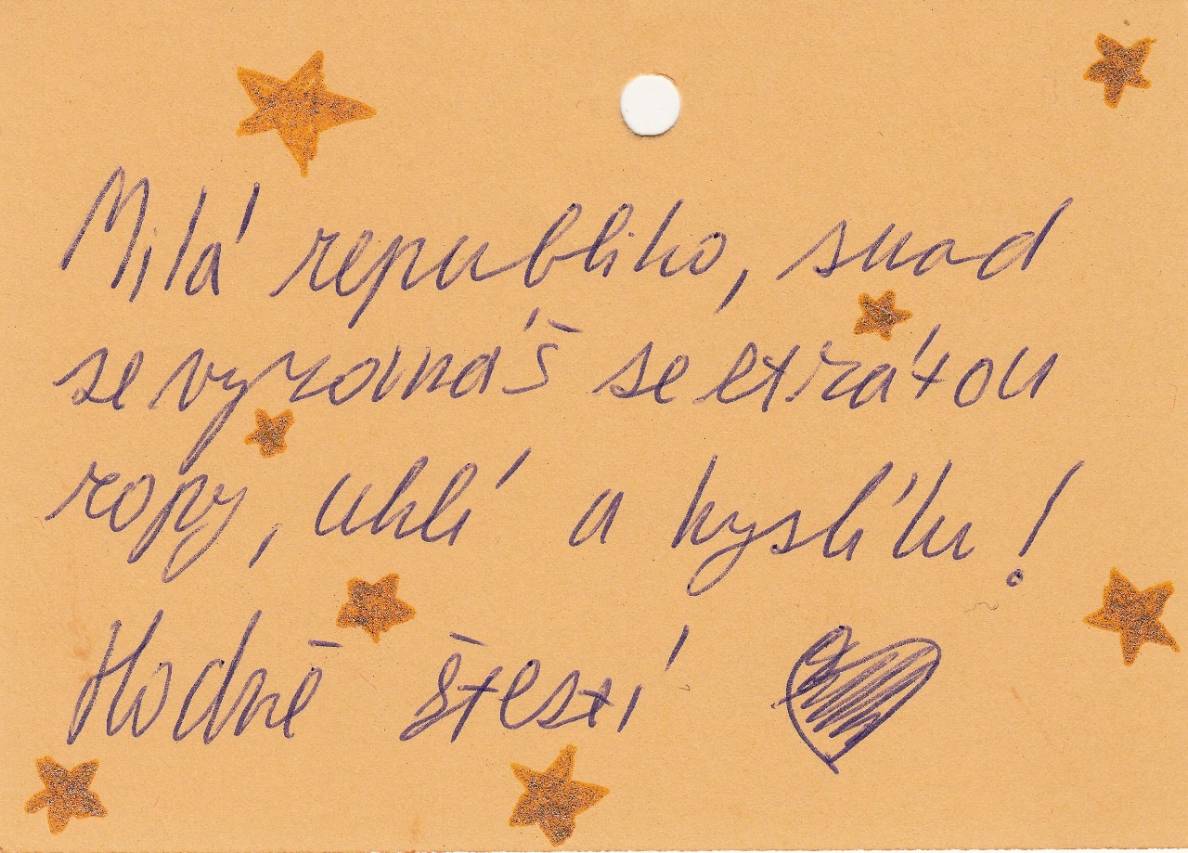 Milá republiko, snad
se vyrovnáš se ztrátou
ropy, uhlí a kyslíku!
Hodně štestí